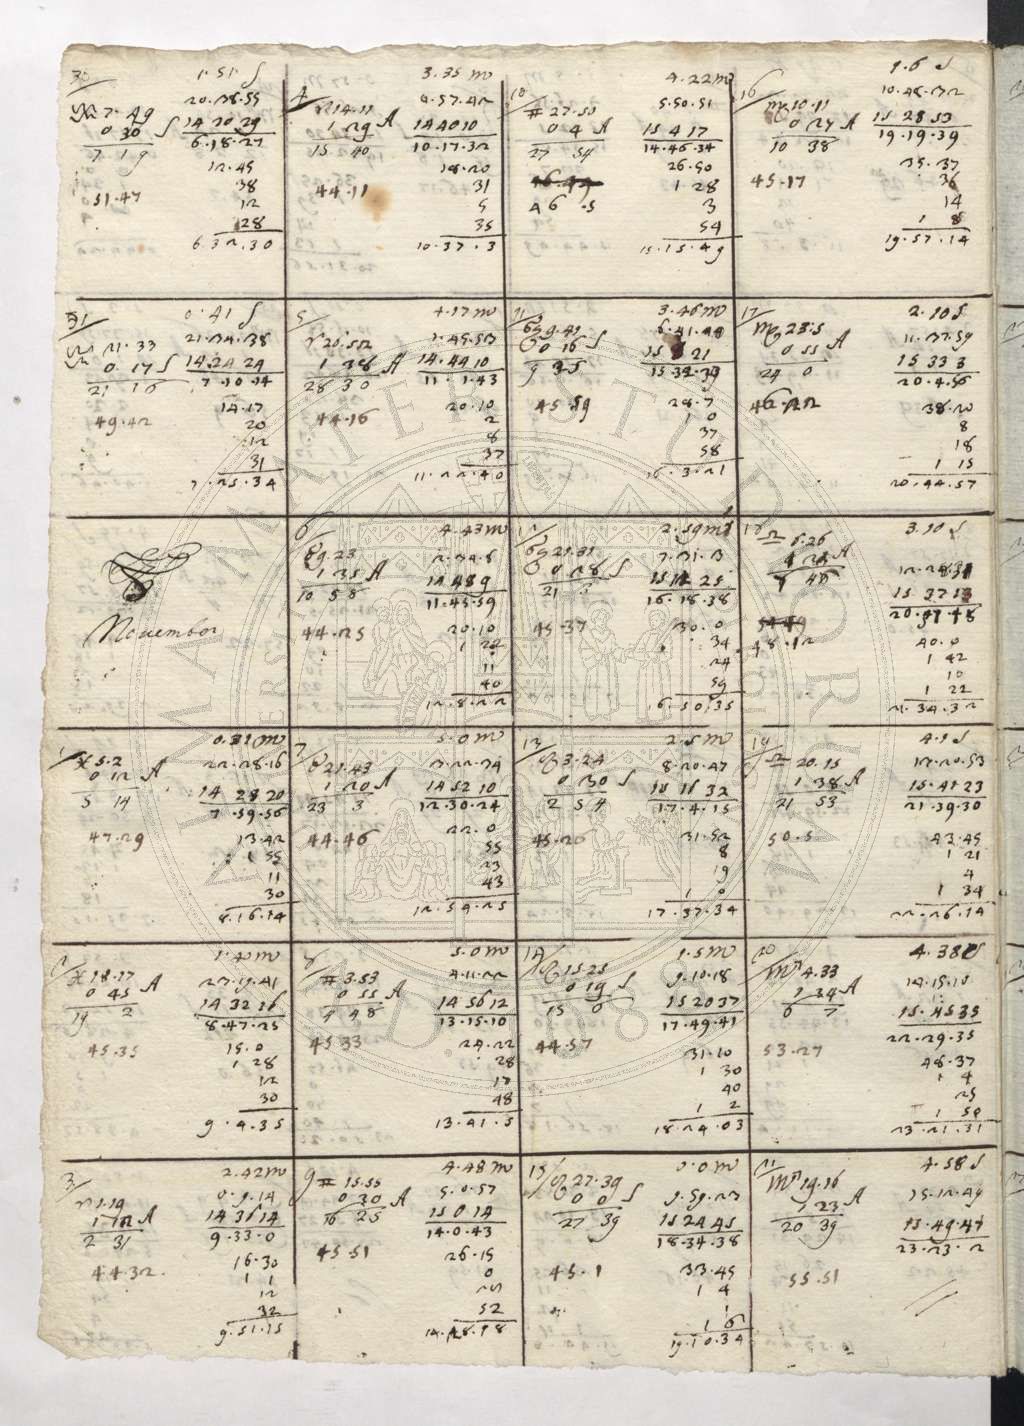 30
1.51. S
♒ 7.49
20.38.55
0 30 S
14 20 29
7 19
6.18.27
12.45
38
51.47
12
28
6.32.30
4
3.35 m
♈ 14.11
6.57.42
1 29 A
14 40 10
15 40
10.17.32
18.20
44.11
31
5
35
10.37.3
10
4.22 m
♊ 27.50
5.50.51
0 4 A
15 4 17
27 54
14.46.34
26.50
1 28
46.5
3
54
15.15.49
16
9.6 S
♍ 10.11
10.48.32
0 27 A
15 28 53
10 38
19.19.39
35.37
45.17
36
14
1 8
19.57.14
31
0.41 S
21.33
21.34.38
0 17 S
14 24 24
21 16
7.10.14
14.17
49.42
20
12
31
7.25.34
5
4.17 m
♈ 20.52
1 38 A
14.44 10
28 30
11.1.43
20.10
44.16
2
8
37
11.22.40
11
3.46 m
♋ 9.41
6.41.48
0 16 S
15 8 21
9 25
28.7
45.59
1 0
37
58
16.3.21
17
2.10 S
♍ 23.5
11.37.59
0 55 A
15 33 3
24 0
20.4.56
38.20
46.22
8
18
1 15
20.44.57
November
6
4.43 m
♉ 9.23
1 35 A
14 48 9
10 58
11.45.59
20.10
44.25
1 22
11
40
12.8.22
2.59 m
♋ 21.31
7.31.3
0 28 S
15 12 25
16.18.38
30.0
45.37
34
24
59
16.50.35
3.10 S
♎ 6.26
15 37 13
48.12
40.0
1 42
10
1 22
21.34.32
1
0.31 m
♓ 5.2
22.28.16
0 12 A
14 28 20
5 14
7.59.56
13.42
47.29
1 55
11
30
8.16.14
7
5.0 m
♉ 21.43
3.22.34
1 20 A
14 52 10
23 3
12.30.24
22.0
44.46
55
23
43
12.54.25
13
2.5 m
♌ 3.24
8.20.47
0 30 S
15 16 32
2 54
17.4.15
31.52
45.26
8
19
1 0
17.37.34
19
4.1 S
♎ 20.15
12.20.53
1 38 A
15.41 23
21 53
21.39.30
43.45
50.5
1 21
4
1 34
22.26.14
2
1.40 m
♓ 18.17
23.19.41
0 45 A
14 32 16
19 2
8.47.25
15.0
45.35
1 28
12
30
9.4.35
8
5.0 m
♊ 3.53
4.11.22
0 55 A
14 56 12
4 48
13.15.10
24.22
45 33
28
17
48
13.41.5
14
1.5 m
♌ 15.25
9.10.18
0 19 S
15 20 37
15 6
17.49.41
31.10
44.57
1 30
40
1 2
18.24.03
20
4.38 S
♏ 4.33
14.15.10
1 34 A
15.45 35
6 7
22.29.35
48.37
53.27
1 4
25
1 50
23.21.31
3
2.42 m
♈ 1.19
0.9.14
1 12 A
14 36 14
2 31
9.33.0
16.30
44.32
1 1
12
32
9.51.15
9
4.48 m
♊ 15.55
5.0.57
0 30 A
15 0 14
16 25
14.0.43
26.15
45.51
0
25
52
14.28.18
15
0.0 m
♌ 27.39
9.59.23
0 0 S
15 24 45
27 39
18.34.38
33.45
45.1
1 4
1
1 6
19.10.34
21
4.58 S
♏ 19.16
15.12.49
1 23 A
15.49.47
20 39
23.23.2
55.51